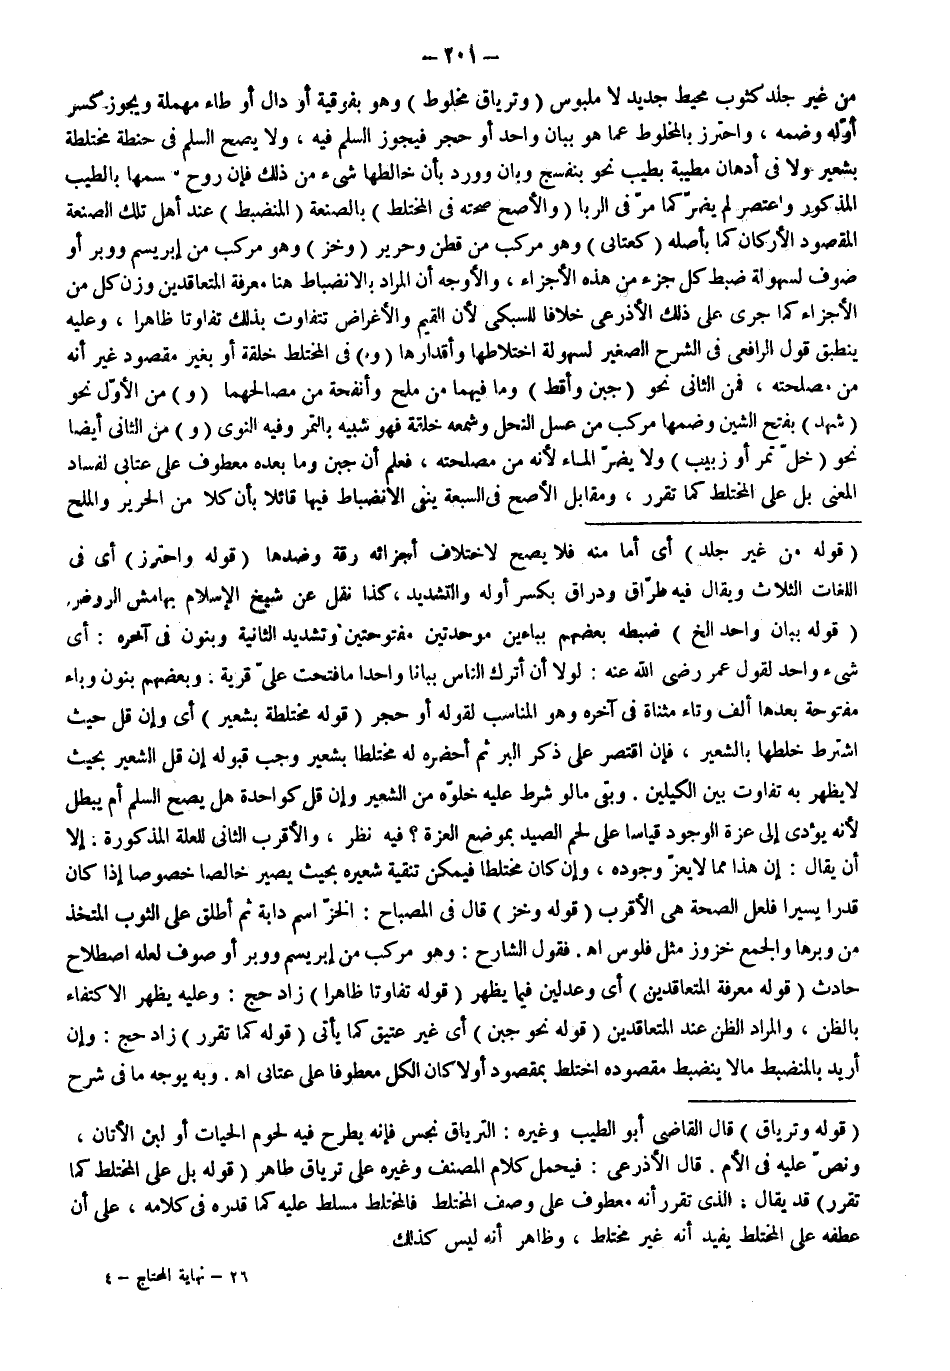 – ٢٠١ –
من غير جلد كثوب محيط جديد لا ملبوس ( وترياق مخلوط ) وهو بفوقية أو دال أو طاء مهملة ويجوز كسر
أوّله وضمه ، واحترز بالمخلوط عما هو ببان واحد أو حجر فيجوز السلم فيه ، ولا يصح السلم فى حنطة مختلطة
بشعير ولا فى أدهان مطيبة بطيب نحو بنفسج وبان وورد بأن خالطها شىء من ذلك فإن روح سمسمها بالطيب
المذكور واعتصر لم يضرّ كما مرّ فى الربا ( والأصح صحته فى المختلط ) بالصنعة ( المنضبط ) عند أهل تلك الصنعة
المقصود الأركان كما بأصله ( كعتابى ) وهو مركب من قطن وحرير ( وخز ) وهو مركب من إبريسم ووبر أو
صوف لسهولة ضبط كل جزء من هذه الأجزاء ، والأوجه أن المراد بالانضباط هنا معرفة المتعاقدين وزن كل من
الأجزاء كما جرى على ذلك الأذرعى خلافا للسبكى لأن القيم والأغراض تتفاوت بذلك تفاوتا ظاهرا ، وعليه
ينطبق قول الرافعى فى الشرح الصغير لسهولة اختلاطها وأقدارها ( و ) فى المختلط خلقة أو بغير مقصود غير أنه
من مصلحته ، فمن الثانى نحو ( جبن وأقط ) وما فيهما من ملح وأنفحة من مصالحهما ( و ) من الأوّل نحو
( شهد ) بفتح الشين وضمها مركب من عسل النحل وشمعه خلقة فهو شبيه بالتمر وفيه النوى ( و ) من الثانى أيضا
نحو ( خلّ تمر أو زبيب ) ولا يضرّ الماء لأنه من مصلحته ، فعلم أن جبن وما بعده معطوف على عتابى لفساد
المعنى بل على المختلط كما تقرر ، ومقابل الأصح فى السبعة ينفى الانضباط فيها قائلا بأن كلا من الحرير والملح
( قوله من غير جلد ) أى أما منه فلا يصح لاختلاف أجزائه رقة وضدها ( قوله واحترز ) أى فى
اللغات الثلاث ويقال فيه طرّاق ودراق بكسر أوله والتشديد ، كذا نقل عن شيخ الإسلام بهامش الروض
( قوله ببان واحد الخ ) ضبطه بعضهم بباءين موحدتين مفتوحتين وتشديد الثانية وبنون فى آخره : أى
شىء واحد لقول عمر رضى الله عنه : لولا أن أترك الناس ببانا واحدا مافتحت علىّ قرية . وبعضهم بنون وباء
مفتوحة بعدها ألف وتاء مثناة فى آخره وهو المناسب لقوله أو حجر ( قوله مختلطة بشعير ) أى وإن قل حيث
اشترط خلطها بالشعير ، فإن اقتصر على ذكر البر ثم أحضره له مختلطا بشعير وجب قبوله إن قل الشعير بحيث
لايظهر به تفاوت بين الكيلين . وبقى مالو شرط عليه خلوّه من الشعير وإن قل كواحدة هل يصح السلم أم يبطل
لأنه يؤدى إلى عزة الوجود قياسا على لحم الصيد بموضع العزة ؟ فيه نظر ، والأقرب الثانى للعلة المذكورة : إلا
أن يقال : إن هذا مما لايعزّ وجوده ، وإن كان مختلطا فيمكن تنقية شعيره بحيث يصير خالصا خصوصا إذا كان
قدرا يسيرا فلعل الصحة هى الأقرب ( قوله وخز ) قال فى المصباح : الخزّ اسم دابة ثم أطلق على الثوب المتخذ
من وبرها والجمع خزوز مثل فلوس اه . فقول الشارح : وهو مركب من إبريسم ووبر أو صوف لعله اصطلاح
حادث ( قوله معرفة المتعاقدين ) أى وعدلين فيما يظهر ( قوله تفاوتا ظاهرا ) زاد حج : وعليه يظهر الاكتفاء
بالظن ، والمراد الظن عند المتعاقدين ( قوله نحو جبن ) أى غير عتيق كما يأتى ( قوله كما تقرر ) زاد حج : وإن
أريد بالمنضبط مالا ينضبط مقصوده اختلط بمقصود أولا كان الكل معطوفا على عتابى اه . وبه يوجه ما فى شرح
( قوله وترياق ) قال القاضى أبو الطيب وغيره : الترياق نجس فإنه يطرح فيه لحوم الحيات أو لبن الأتان ،
ونصّ عليه فى الأم . قال الأذرعى : فيحمل كلام المصنف وغيره على ترياق طاهر ( قوله بل على المختلط كما
تقرر ) قد يقال : الذى تقرر أنه معطوف على وصف المختلط فالمختلط مسلط عليه كما قدره فى كلامه ، على أن
عطفه على المختلط يفيد أنه غير مختلط ، وظاهر أنه ليس كذلك
٢٦ – نهاية المحتاج – ٤